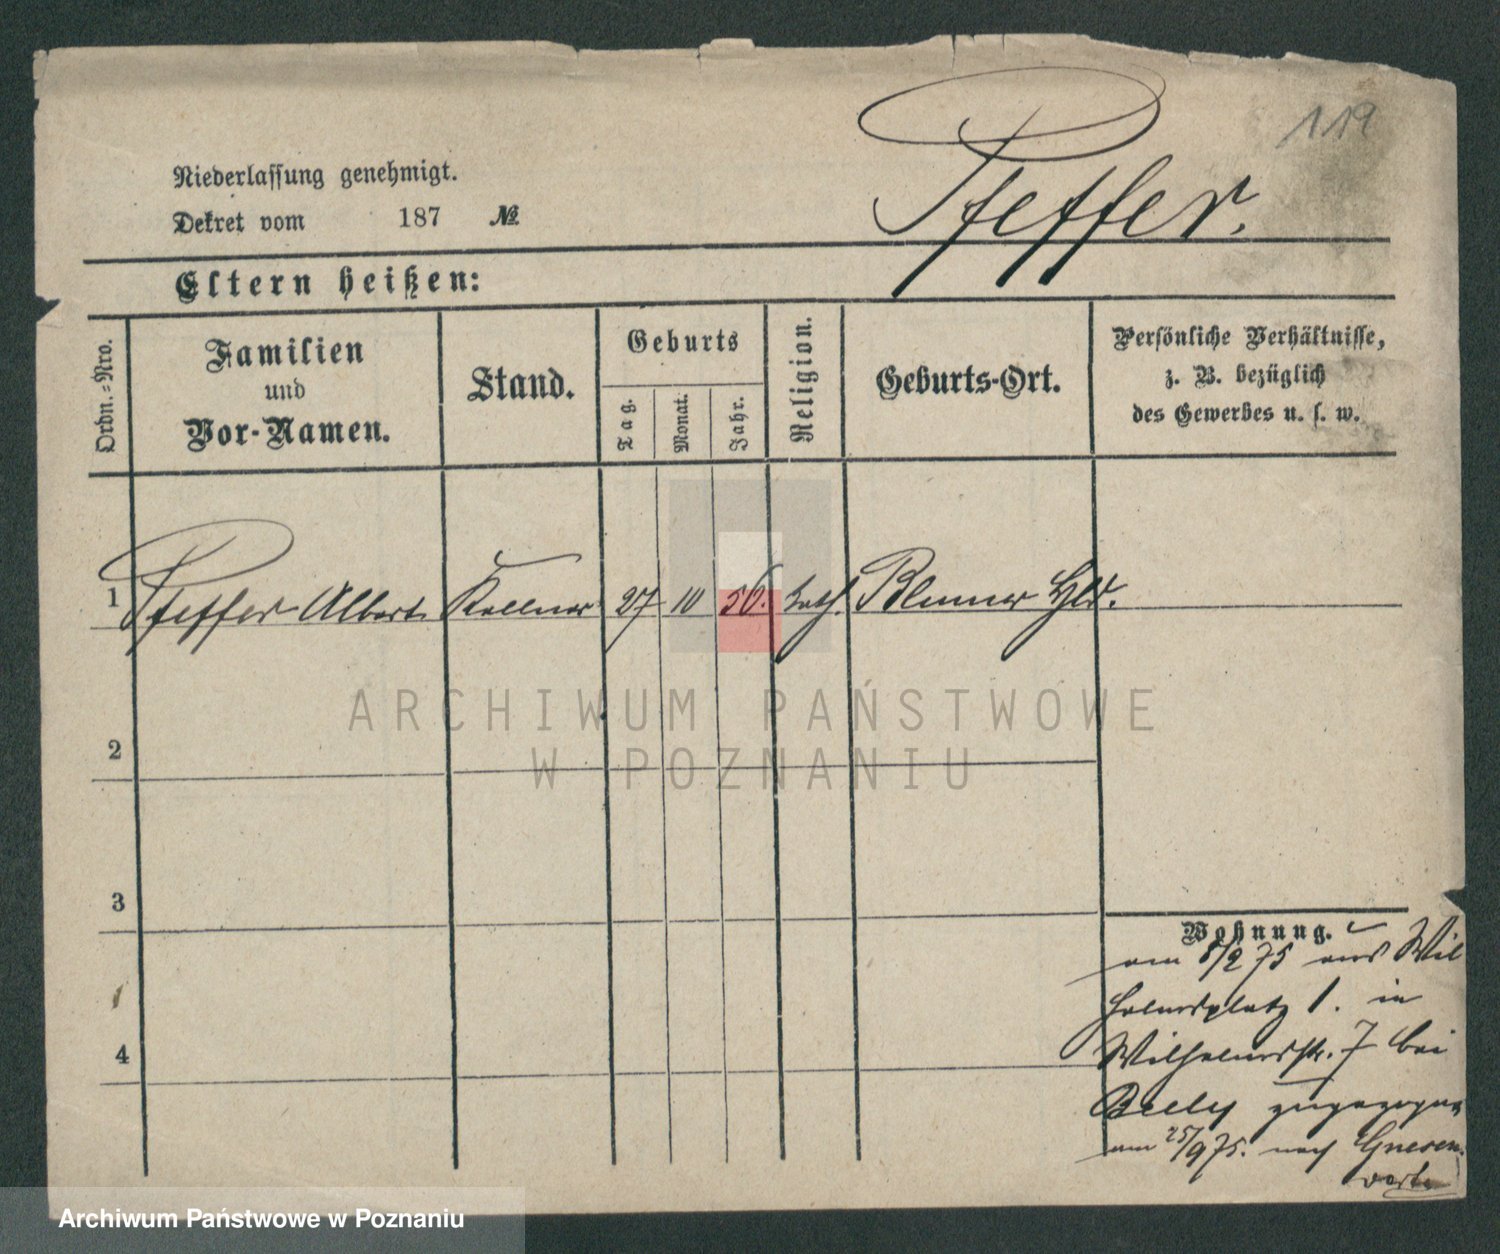 119
Pfeffer.
Niederlassung genehmigt.
Dekret vom 187 №
Eltern heißen:
Ordn.-Nro.
Familien
und
Vor-Namen.
Stand.
Geburts
Tag.
Monat.
Jahr.
Religion.
Geburts-Ort.
Persönliche Verhältnisse,
z. B. bezüglich
des Gewerbes u. s. w.
1 Pfeffer Albert Kellner 27 10 56. kath.
2
3
4
Wohnung.
am 8/2 75 aus Wil
helmsplatz 1. in
Wilhelmsstr. 7 bei
Beely zugezogen
am 25/9 75. nach Gnesen
ARCHIWUM PAŃSTWOWE
W POZNANIU
Archiwum Państwowe w Poznaniu